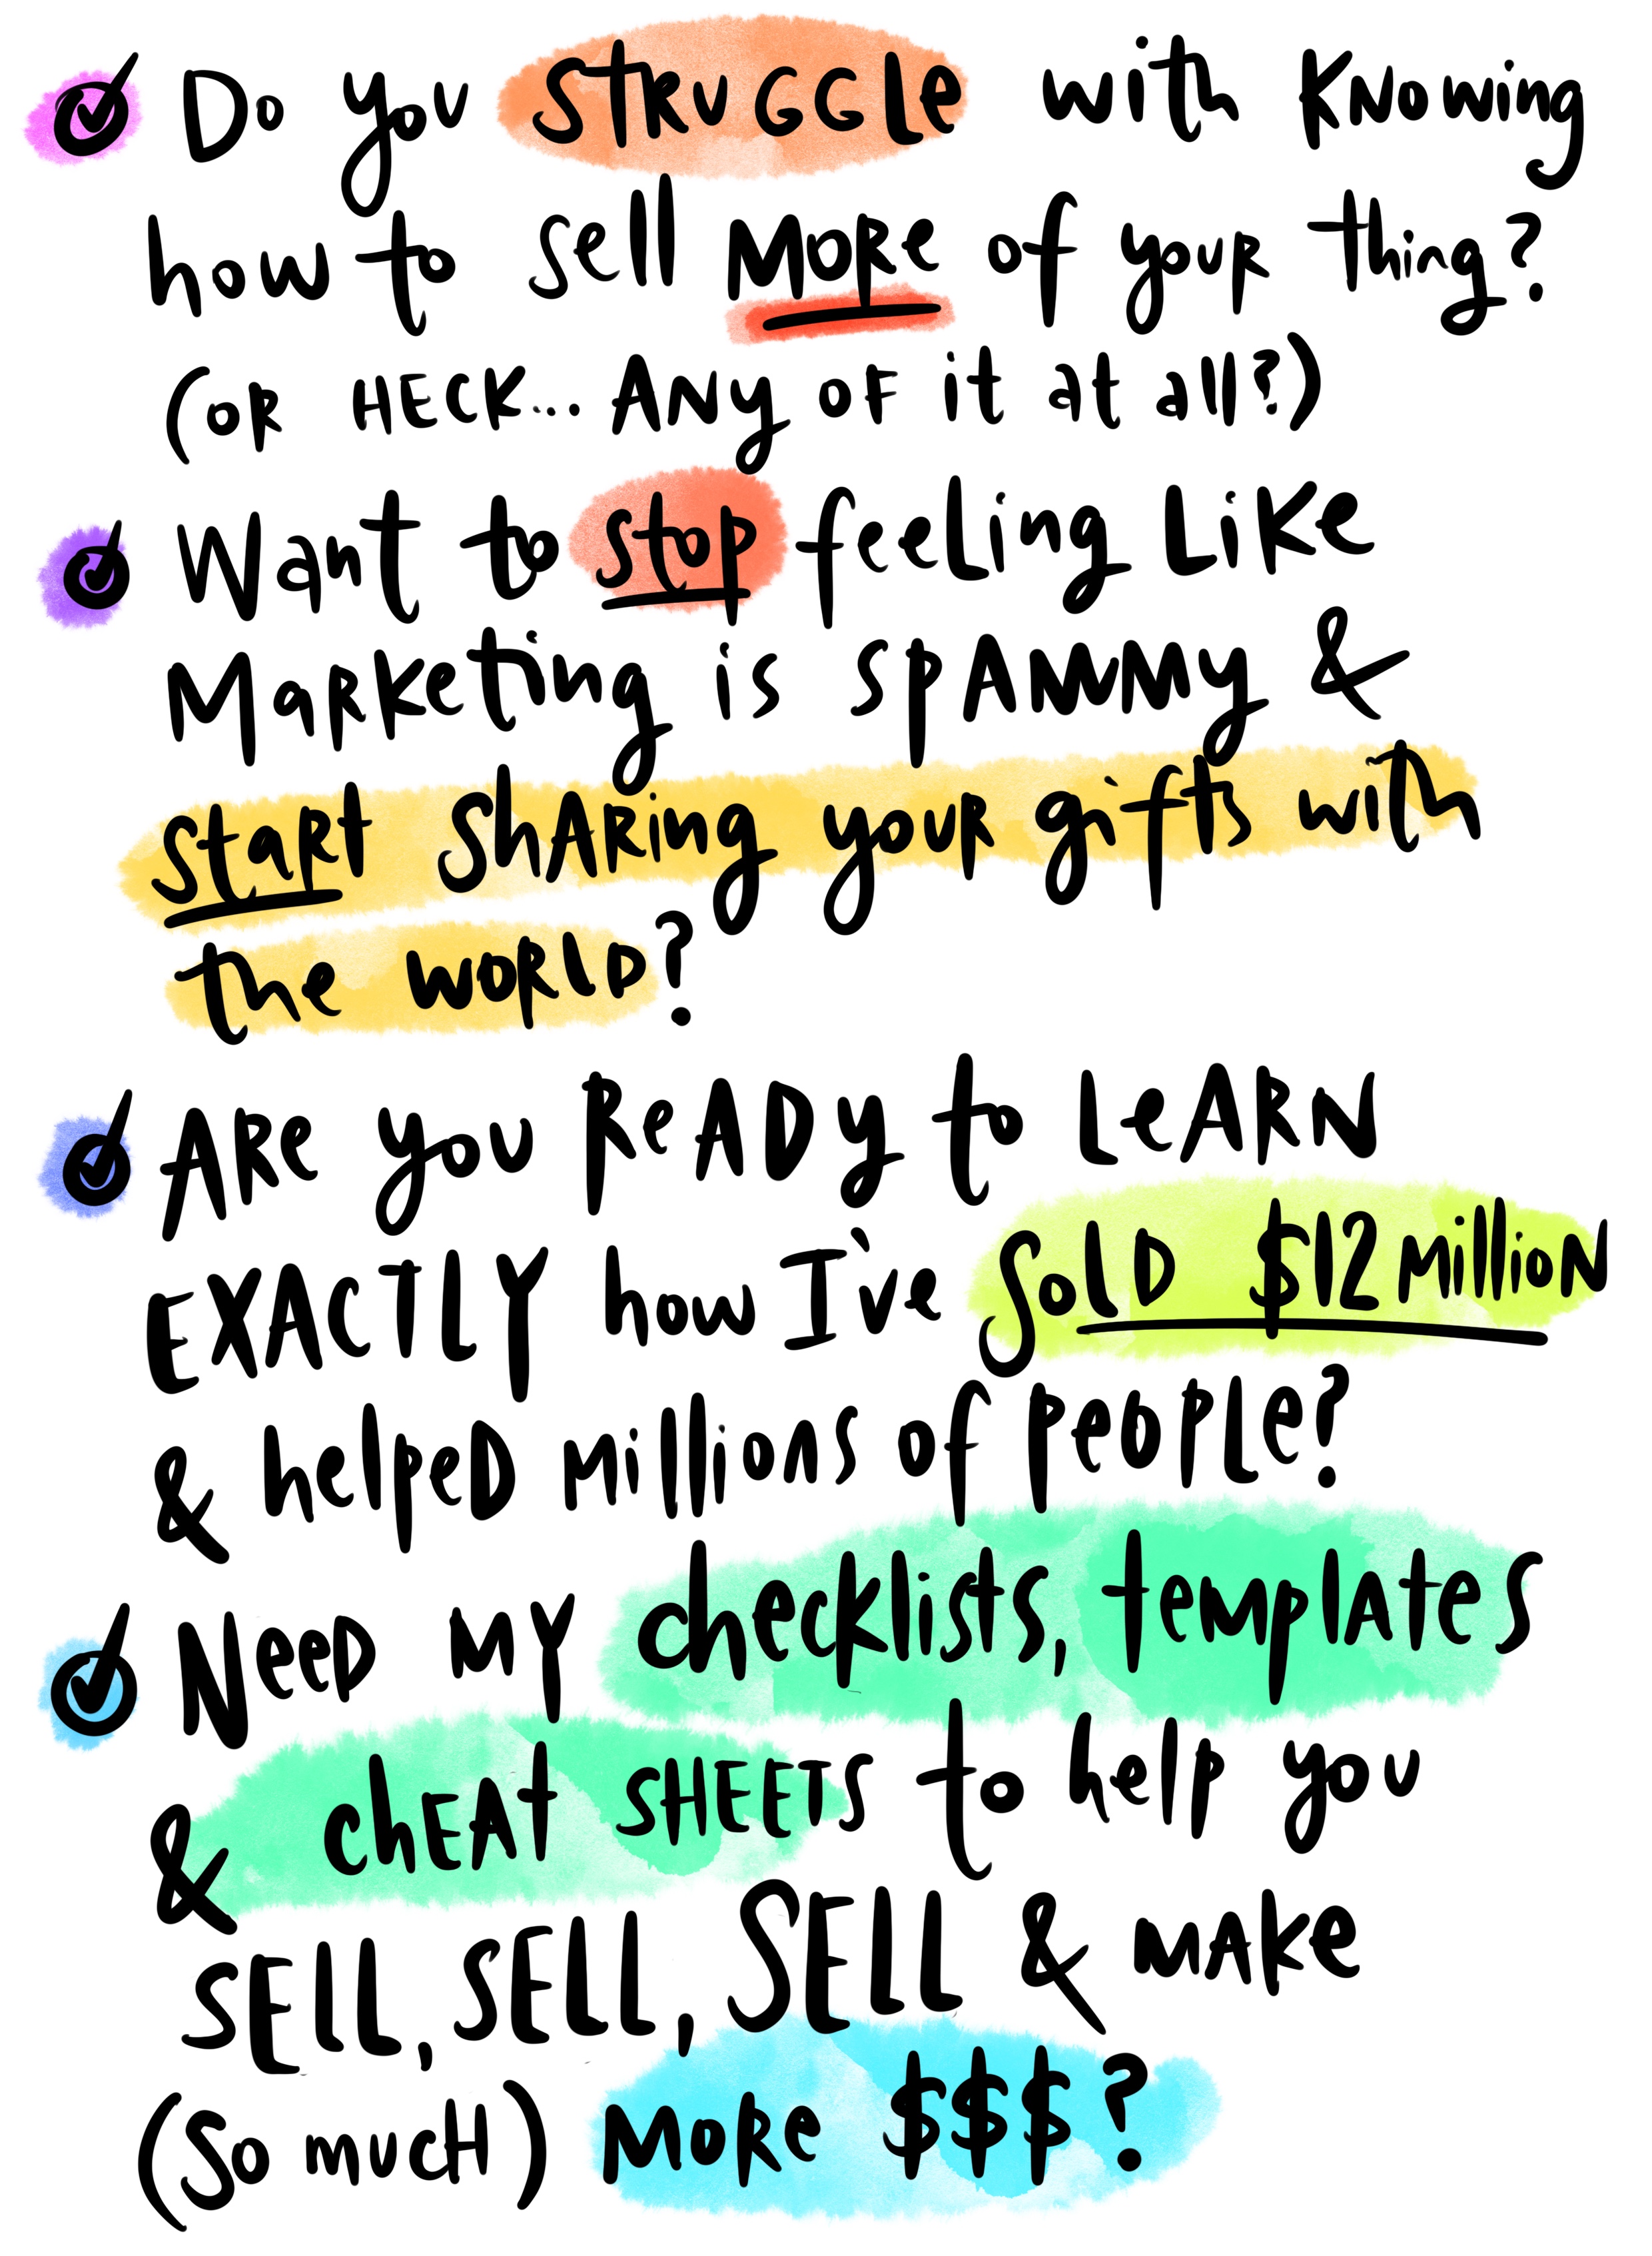 Do you STRUGGLE with Knowing
how to sell MORE of your thing?
(OR HECK... ANY OF it at all?)
Want to stop feeling Like
Marketing is SPAMMY &
start ShARing your gifts with
the WORLD?
ARe you ReADy to LeARN
EXACTLY how I've SOLD $12 Million
& helpeD Millions of people?
NeeD MY checklists, templates
& chEAt SHEETS to help you
SELL, SELL, SELL & MAKe
(So mucH) MoRe $$$?